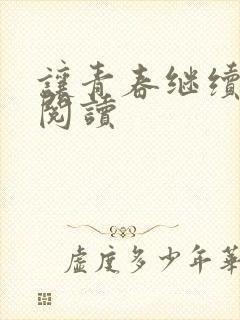 讓青春继续
閱讀
虛度多少年華